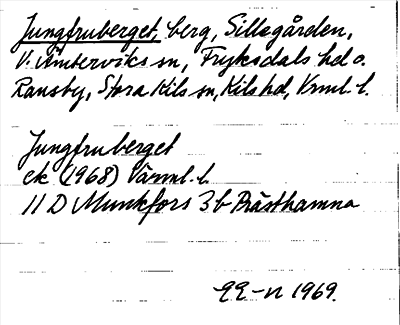 Jungfruberget, berg, Sillegården,
V. Ämterviks sn, Fryksdals hd o.
Ransby, Stora Kils sn, Kils hd, Vrml. l.
Jungfruberget
ek (1968) Värml. l.
11 D Munkfors 3b Prästhamna
1969.